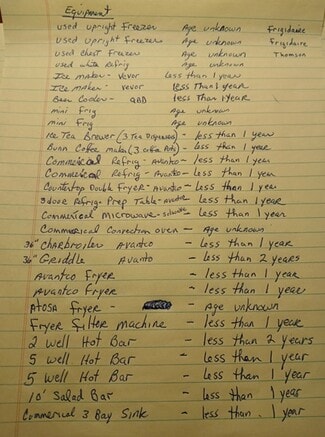 Equipment
used upright Freezer Age unknown Frigidaire
used upright Freezers Age unknown Frigidaire
used chest Freezer Age unknown Thomson
used white Refrig Age unknown
Ice maker - Vevor less than 1 year
Ice maker - vevor less than 1 year
Beer Cooler - less than 1 year
mini Frig Age unknown
mini Frig Age unknown
Ice Tea Brewer (3 Tea Dispensers) - less than 1 year
Bunn Coffee maker (3 coffee Pots) - less than 1 year
Commercial Refrig - Avantco - less than 1 year
Commercial Refrig - Avantco - less than 1 year
Countertop Double Fryer - Avantco - less than 1 year
3 door Refrig. Prep Table - Avantco - less than 1 year
Commercial Microwave - - less than 1 year
Commercial Convection oven - Age unknown
36" Charbroiler Avantco - less than 1 year
36" Griddle Avanto - less than 2 years
Avantco Fryer - less than 1 year
Avantco Fryer - less than 1 year
Atosa Fryer - - Age unknown
Fryer Filter machine - less than 1 year
2 well Hot Bar - less than 2 years
5 well Hot Bar - less than 1 year
5 well Hot Bar - less than 1 year
10' Salad Bar - less than 1 year
Commerical 3 Bay Sink - less than 1 year